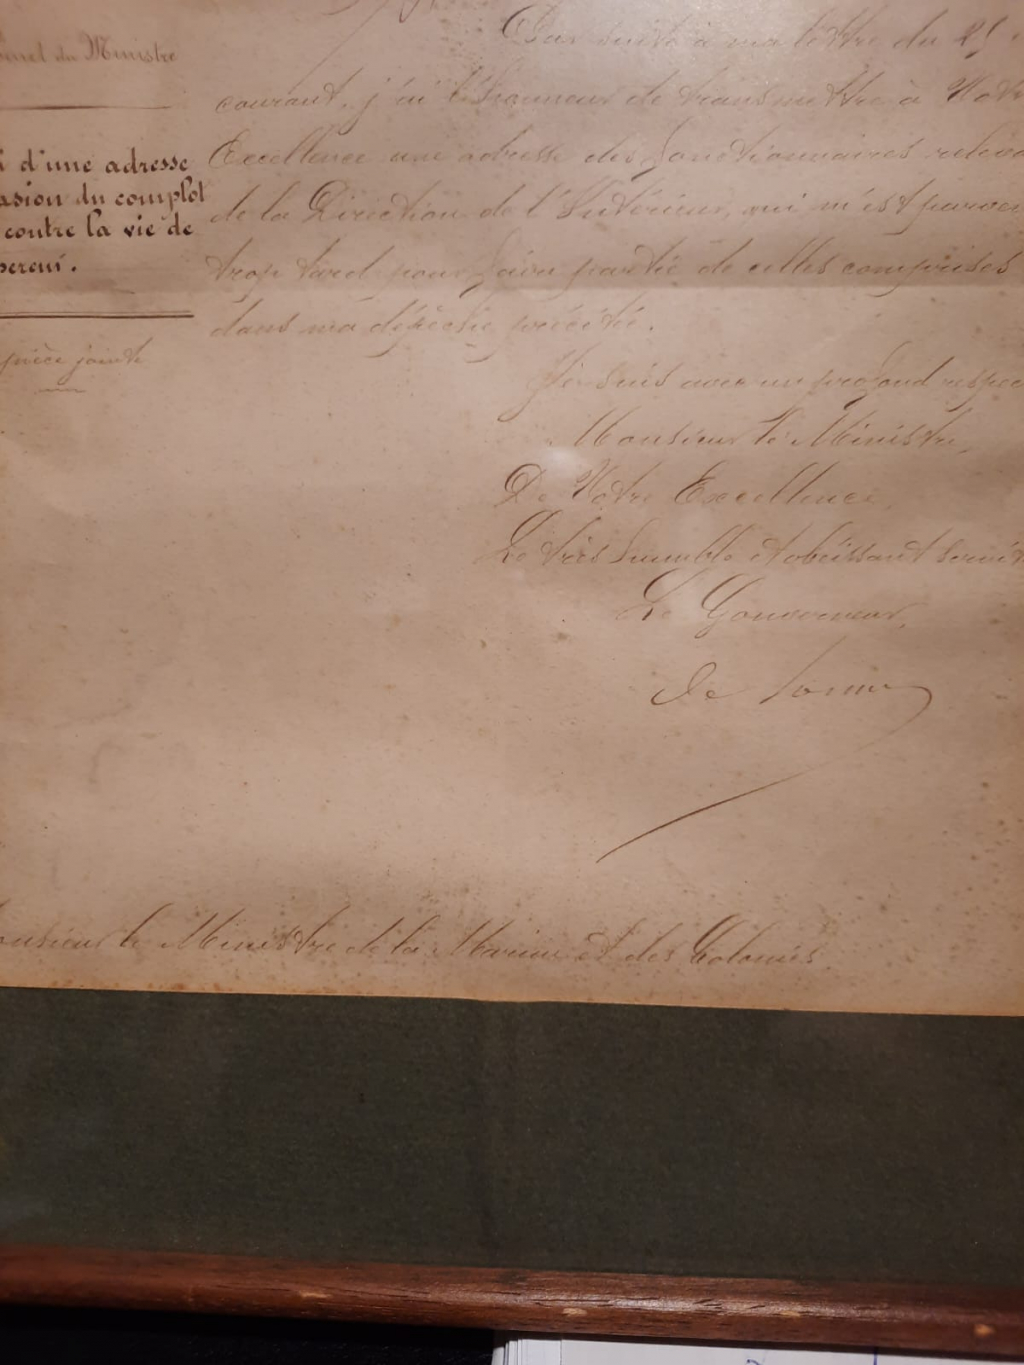 Par suite à ma lettre du 25
courant, j'ai l'honneur de transmettre à Votr
Excellence une adresse des fonctionnaires releva
de la Direction de l'Intérieur, qui m'est parven
trop tard pour faire partie de celles comprises
dans ma dépêche précitée.
Je suis avec un profond respec
Monsieur le Ministre,
De Votre Excellence,
Le très humble et obéissant servit
Le Gouverneur,
de
inet du Ministre
i d'une adresse
asion du complot
contre la vie de
pereur.
pièce jointe
onsieur le Ministre de la Marine et des Colonies